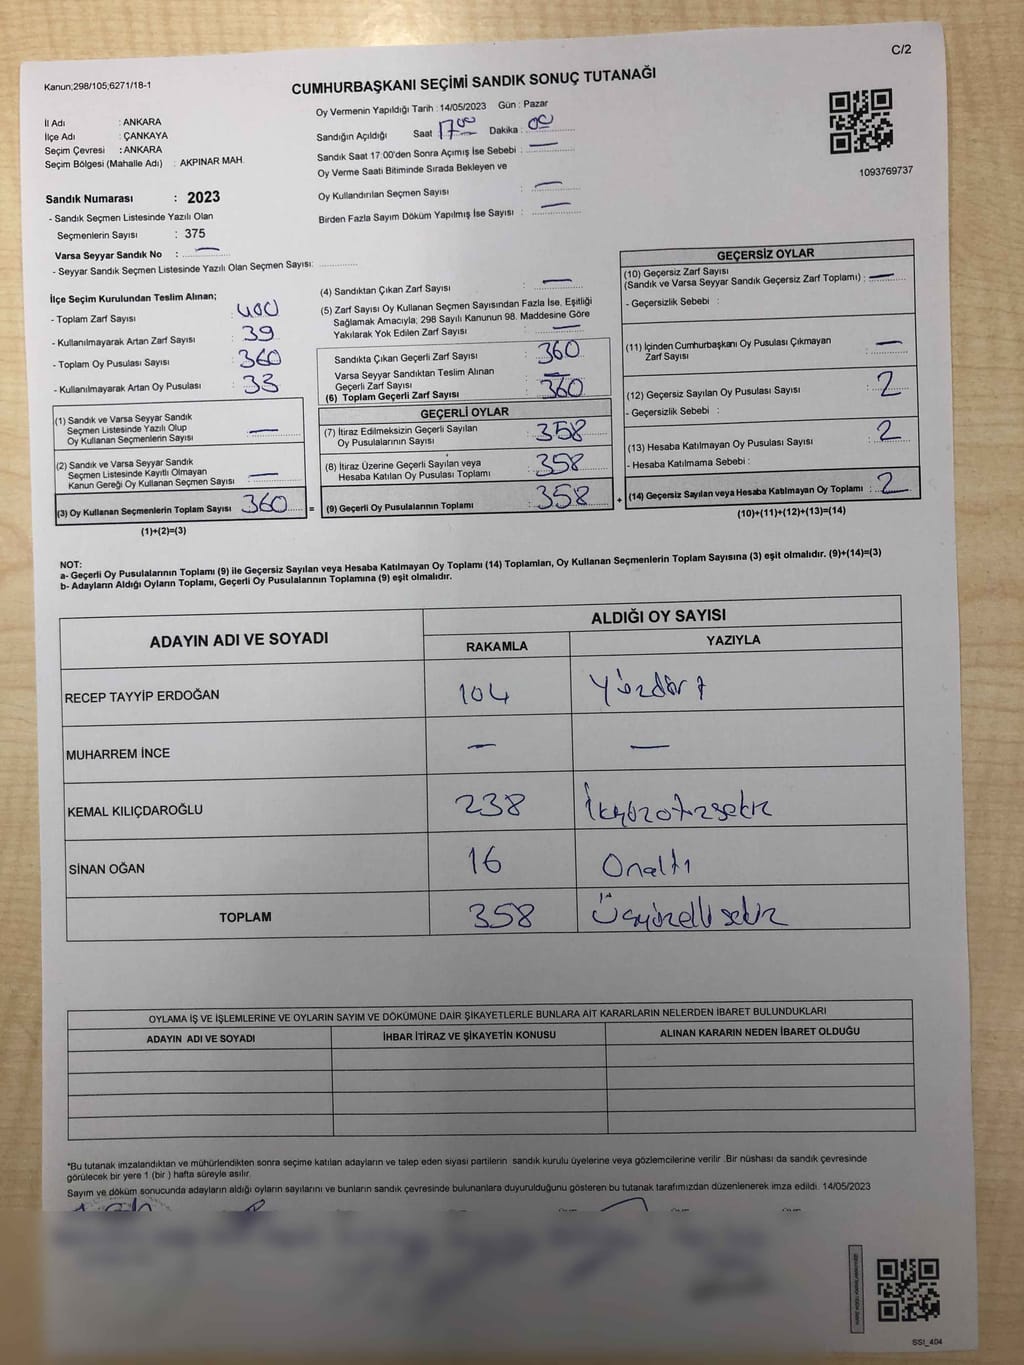 C/2
Kanun;298/105;6271/18-1
CUMHURBAŞKANI SEÇİMİ SANDIK SONUÇ TUTANAĞI
İl Adı : ANKARA
İlçe Adı : ÇANKAYA
Seçim Çevresi : ANKARA
Seçim Bölgesi (Mahalle Adı) : AKPINAR MAH.
Sandık Numarası : 2023
- Sandık Seçmen Listesinde Yazılı Olan
Seçmenlerin Sayısı : 375
Varsa Seyyar Sandık No : —
- Seyyar Sandık Seçmen Listesinde Yazılı Olan Seçmen Sayısı:
Oy Vermenin Yapıldığı Tarih : 14/05/2023 Gün : Pazar
Sandığın Açıldığı Saat 17:00 Dakika : 00
Sandık Saat 17:00'den Sonra Açımış İse Sebebi : —
Oy Verme Saati Bitiminde Sırada Bekleyen ve
Oy Kullandırılan Seçmen Sayısı : —
Birden Fazla Sayım Döküm Yapılmış İse Sayısı : —
1093769737
İlçe Seçim Kurulundan Teslim Alınan;
- Toplam Zarf Sayısı : 400
- Kullanılmayarak Artan Zarf Sayısı : 39
- Toplam Oy Pusulası Sayısı : 360
- Kullanılmayarak Artan Oy Pusulası : 33
(1) Sandık ve Varsa Seyyar Sandık
Seçmen Listesinde Yazılı Olup
Oy Kullanan Seçmenlerin Sayısı : —
(2) Sandık ve Varsa Seyyar Sandık
Seçmen Listesinde Kayıtlı Olmayan
Kanun Gereği Oy Kullanan Seçmen Sayısı : —
(3) Oy Kullanan Seçmenlerin Toplam Sayısı 360 =
(1)+(2)=(3)
(4) Sandıktan Çıkan Zarf Sayısı : —
(5) Zarf Sayısı Oy Kullanan Seçmen Sayısından Fazla İse, Eşitliği
Sağlamak Amacıyla; 298 Sayılı Kanunun 98. Maddesine Göre
Yakılarak Yok Edilen Zarf Sayısı : —
Sandıkta Çıkan Geçerli Zarf Sayısı : 360
Varsa Seyyar Sandıktan Teslim Alınan
Geçerli Zarf Sayısı : —
(6) Toplam Geçerli Zarf Sayısı : 360
GEÇERLİ OYLAR
(7) İtiraz Edilmeksizin Geçerli Sayılan
Oy Pusulalarının Sayısı : 358
(8) İtiraz Üzerine Geçerli Sayılan veya
Hesaba Katılan Oy Pusulası Toplamı : 358
(9) Geçerli Oy Pusulalarının Toplamı : 358 +
GEÇERSİZ OYLAR
(10) Geçersiz Zarf Sayısı
(Sandık ve Varsa Seyyar Sandık Geçersiz Zarf Toplamı) : —
- Geçersizlik Sebebi :
(11) İçinden Cumhurbaşkanı Oy Pusulası Çıkmayan
Zarf Sayısı : —
(12) Geçersiz Sayılan Oy Pusulası Sayısı : 2
- Geçersizlik Sebebi :
(13) Hesaba Katılmayan Oy Pusulası Sayısı : 2
- Hesaba Katılmama Sebebi :
(14) Geçersiz Sayılan veya Hesaba Katılmayan Oy Toplamı : 2
(10)+(11)+(12)+(13)=(14)
NOT:
a- Geçerli Oy Pusulalarının Toplamı (9) ile Geçersiz Sayılan veya Hesaba Katılmayan Oy Toplamı (14) Toplamları, Oy Kullanan Seçmenlerin Toplam Sayısına (3) eşit olmalıdır. (9)+(14)=(3)
b- Adayların Aldığı Oyların Toplamı, Geçerli Oy Pusulalarının Toplamına (9) eşit olmalıdır.
ADAYIN ADI VE SOYADI
ALDIĞI OY SAYISI
RAKAMLA YAZIYLA
RECEP TAYYİP ERDOĞAN 104 Yüzdört
MUHARREM İNCE — —
KEMAL KILIÇDAROĞLU 238 İkiyüzotuzsekiz
SİNAN OĞAN 16 Onaltı
TOPLAM 358 Üçyüzellisekiz
OYLAMA İŞ VE İŞLEMLERİNE VE OYLARIN SAYIM VE DÖKÜMÜNE DAİR ŞİKAYETLERLE BUNLARA AİT KARARLARIN NELERDEN İBARET BULUNDUKLARI
ADAYIN ADI VE SOYADI İHBAR İTİRAZ VE ŞİKAYETİN KONUSU ALINAN KARARIN NEDEN İBARET OLDUĞU
*Bu tutanak imzalandıktan ve mühürlendikten sonra seçime katılan adayların ve talep eden siyasi partilerin sandık kurulu üyelerine veya gözlemcilerine verilir .Bir nüshası da sandık çevresinde
görülecek bir yere 1 (bir ) hafta süreyle asılır.
Sayım ve döküm sonucunda adayların aldığı oyların sayılarını ve bunların sandık çevresinde bulunanlara duyurulduğunu gösteren bu tutanak tarafımızdan düzenlenerek imza edildi. 14/05/2023
SSI_404